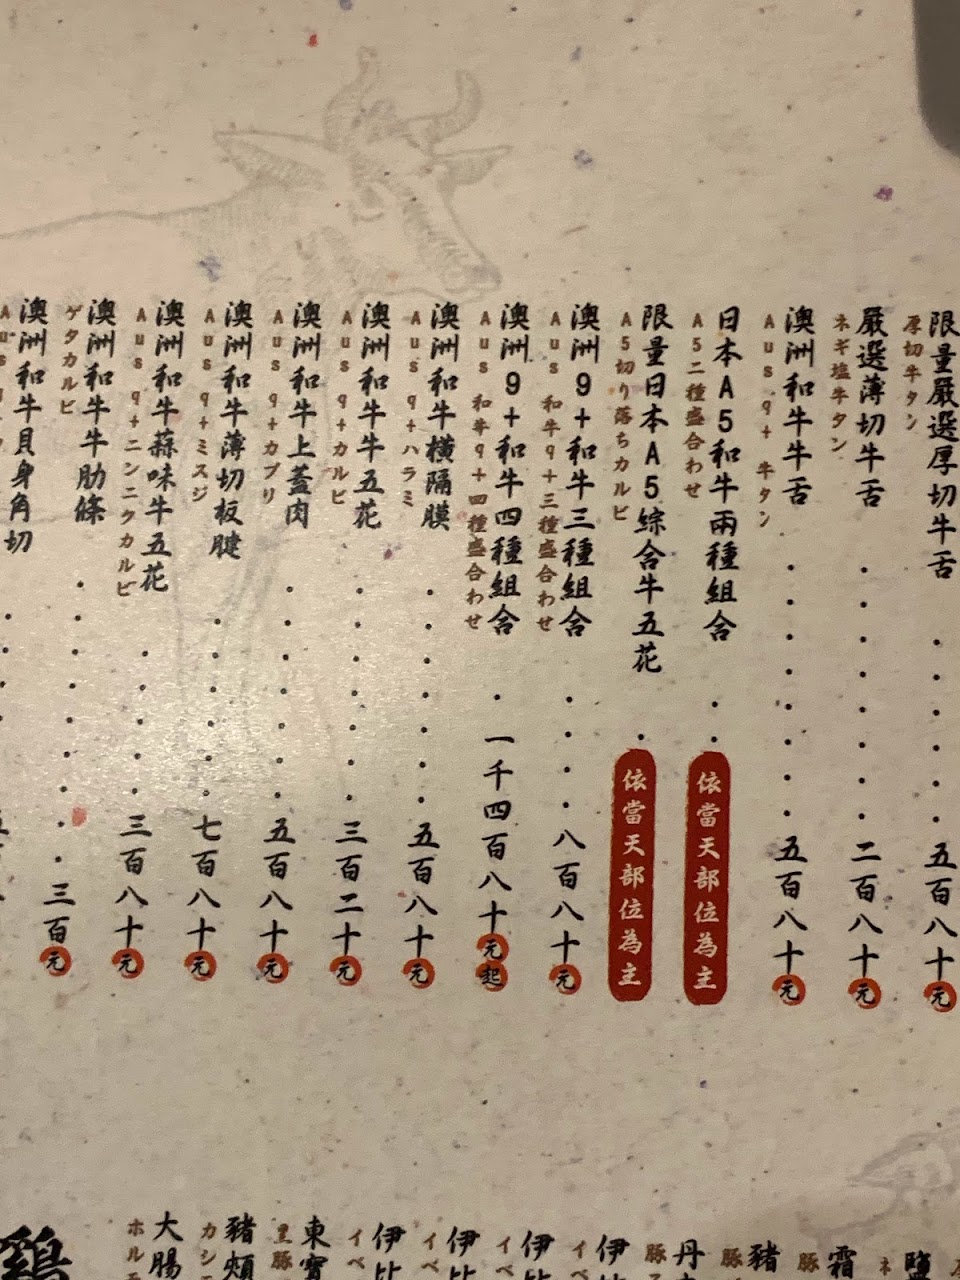 限量嚴選厚切牛舌・・・・・・五百八十元
厚切牛タン
嚴選薄切牛舌・・・・・・・・二百八十元
ネギ塩牛タン
澳洲和牛牛舌・・・・・・・・五百八十元
Aus 9+ 牛タン
日本A5和牛兩種組合・・依當天部位為主
A5二種盛合わせ
限量日本A5綜合牛五花・依當天部位為主
A5切り落ちカルビ
澳洲9+和牛三種組合・・・・八百八十元
Aus 和牛9+三種盛合わせ
澳洲9+和牛四種組合・一千四百八十元起
Aus 和牛9+四種盛合わせ
澳洲和牛橫隔膜・・・・・・・五百八十元
Aus 9+ハラミ
澳洲和牛牛五花・・・・・・・・三百二十元
Aus 9+カルビ
澳洲和牛上蓋肉・・・・・・・五百八十元
Aus 9+カブリ
澳洲和牛薄切板腱・・・・・・七百八十元
Aus 9+ミスジ
澳洲和牛蒜味牛五花・・・・・三百八十元
Aus 9+ニンニクカルビ
澳洲和牛牛肋條・・・・・・・・・三百元
ゲタカルビ
澳洲和牛貝身角切
Aus
鹽
霜
豚
豬
豚
丹
豚
伊比
イベ
伊比
イベ
伊比
イベ
伊比
イベ
東寶
里豚
豬頰
カシ
大腸
ホル
鷄